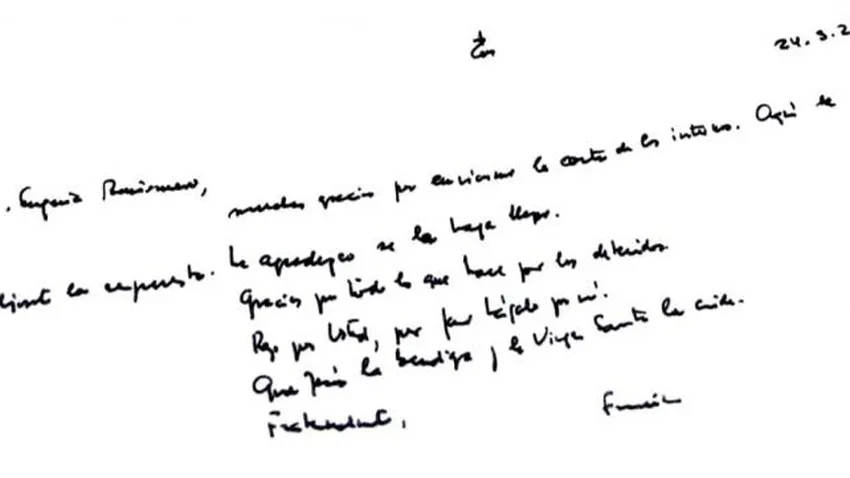 24.3.2
Eugenia
muchas gracias por enviarme la carta de los internos. Aquí le
la respuesta. Le agradezco se la haga llegar.
Gracias por todo lo que hace por los detenidos.
Rezo por Usted, por favor hágalo por mí.
Que Jesús la bendiga y la Virgen Santa la cuide.
Fraternalmente,